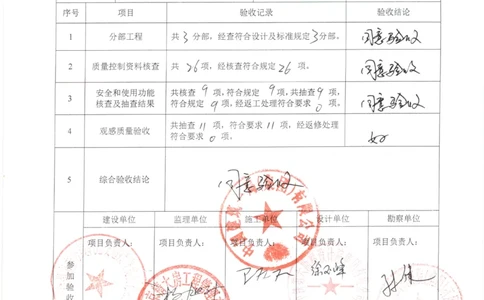 序号 项目 验收记录 验收结论
1 分部工程 共 3 分部，经查符合设计及标准规定 3 分部。 同意验收
2 质量控制资料核查 共 26 项，经核查符合规定 26 项。 同意验收
3 安全和使用功能核查及抽查结果 共核查 9 项，符合规定 9 项，共抽查 9 项，
符合规定 9 项，经返工处理符合要求 0 项。 同意验收
4 观感质量验收 共抽查 11 项，符合要求 11 项，经返修处理
符合要求 0 项。 好
5 综合验收结论 同意验收
建设单位 监理单位 施工单位 设计单位 勘察单位
项目负责人： 项目负责人： 项目负责人： 项目负责人： 项目负责人：
参加验收